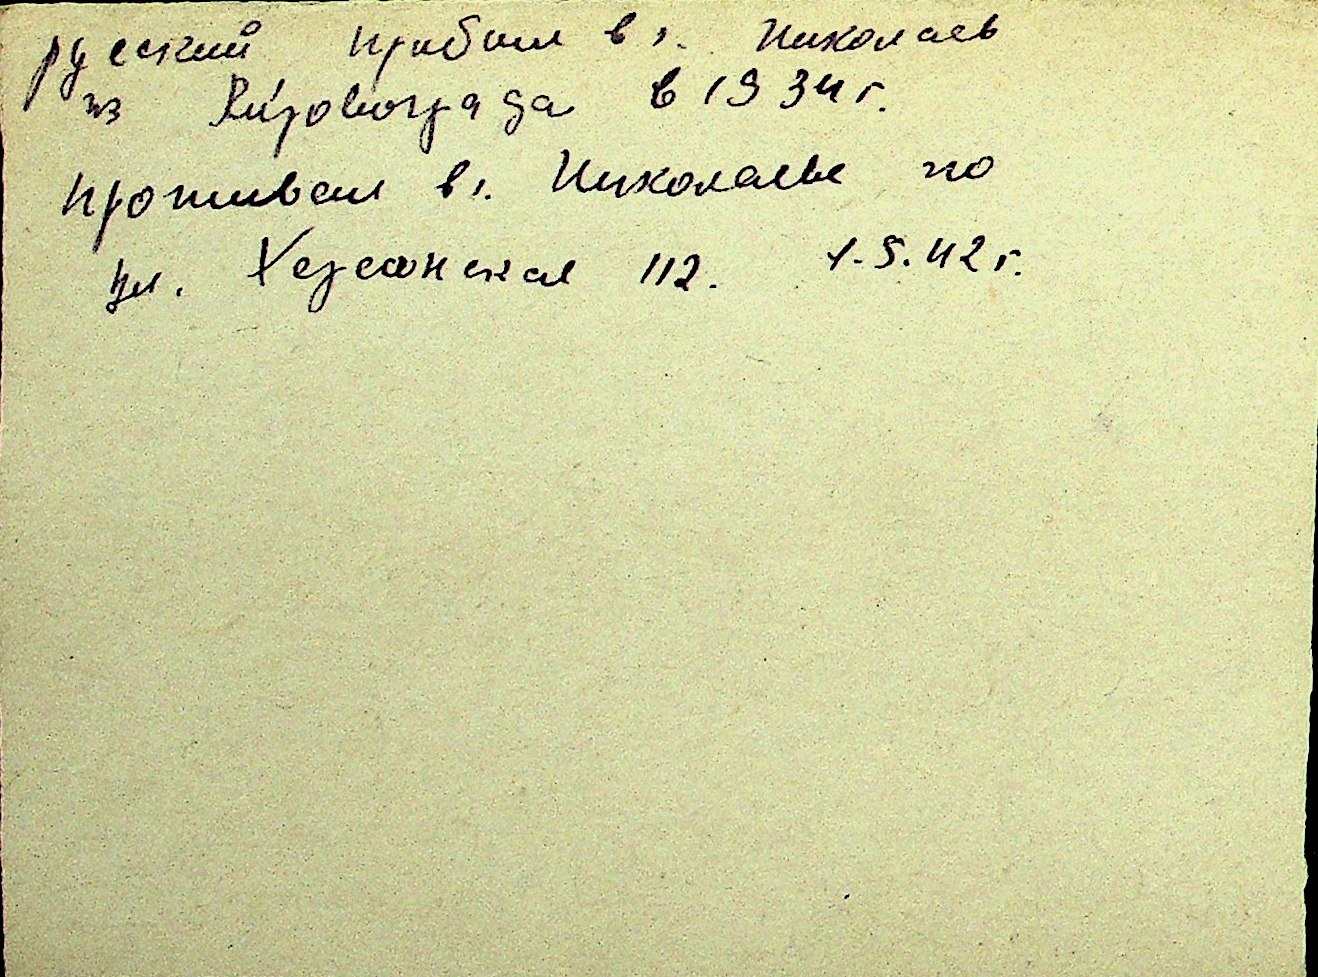 русский прибыл в г. Николаев
из Кировограда в 1934 г.
проживал в г. Николаеве по
ул. Херсонская 112. 1.5.42 г.